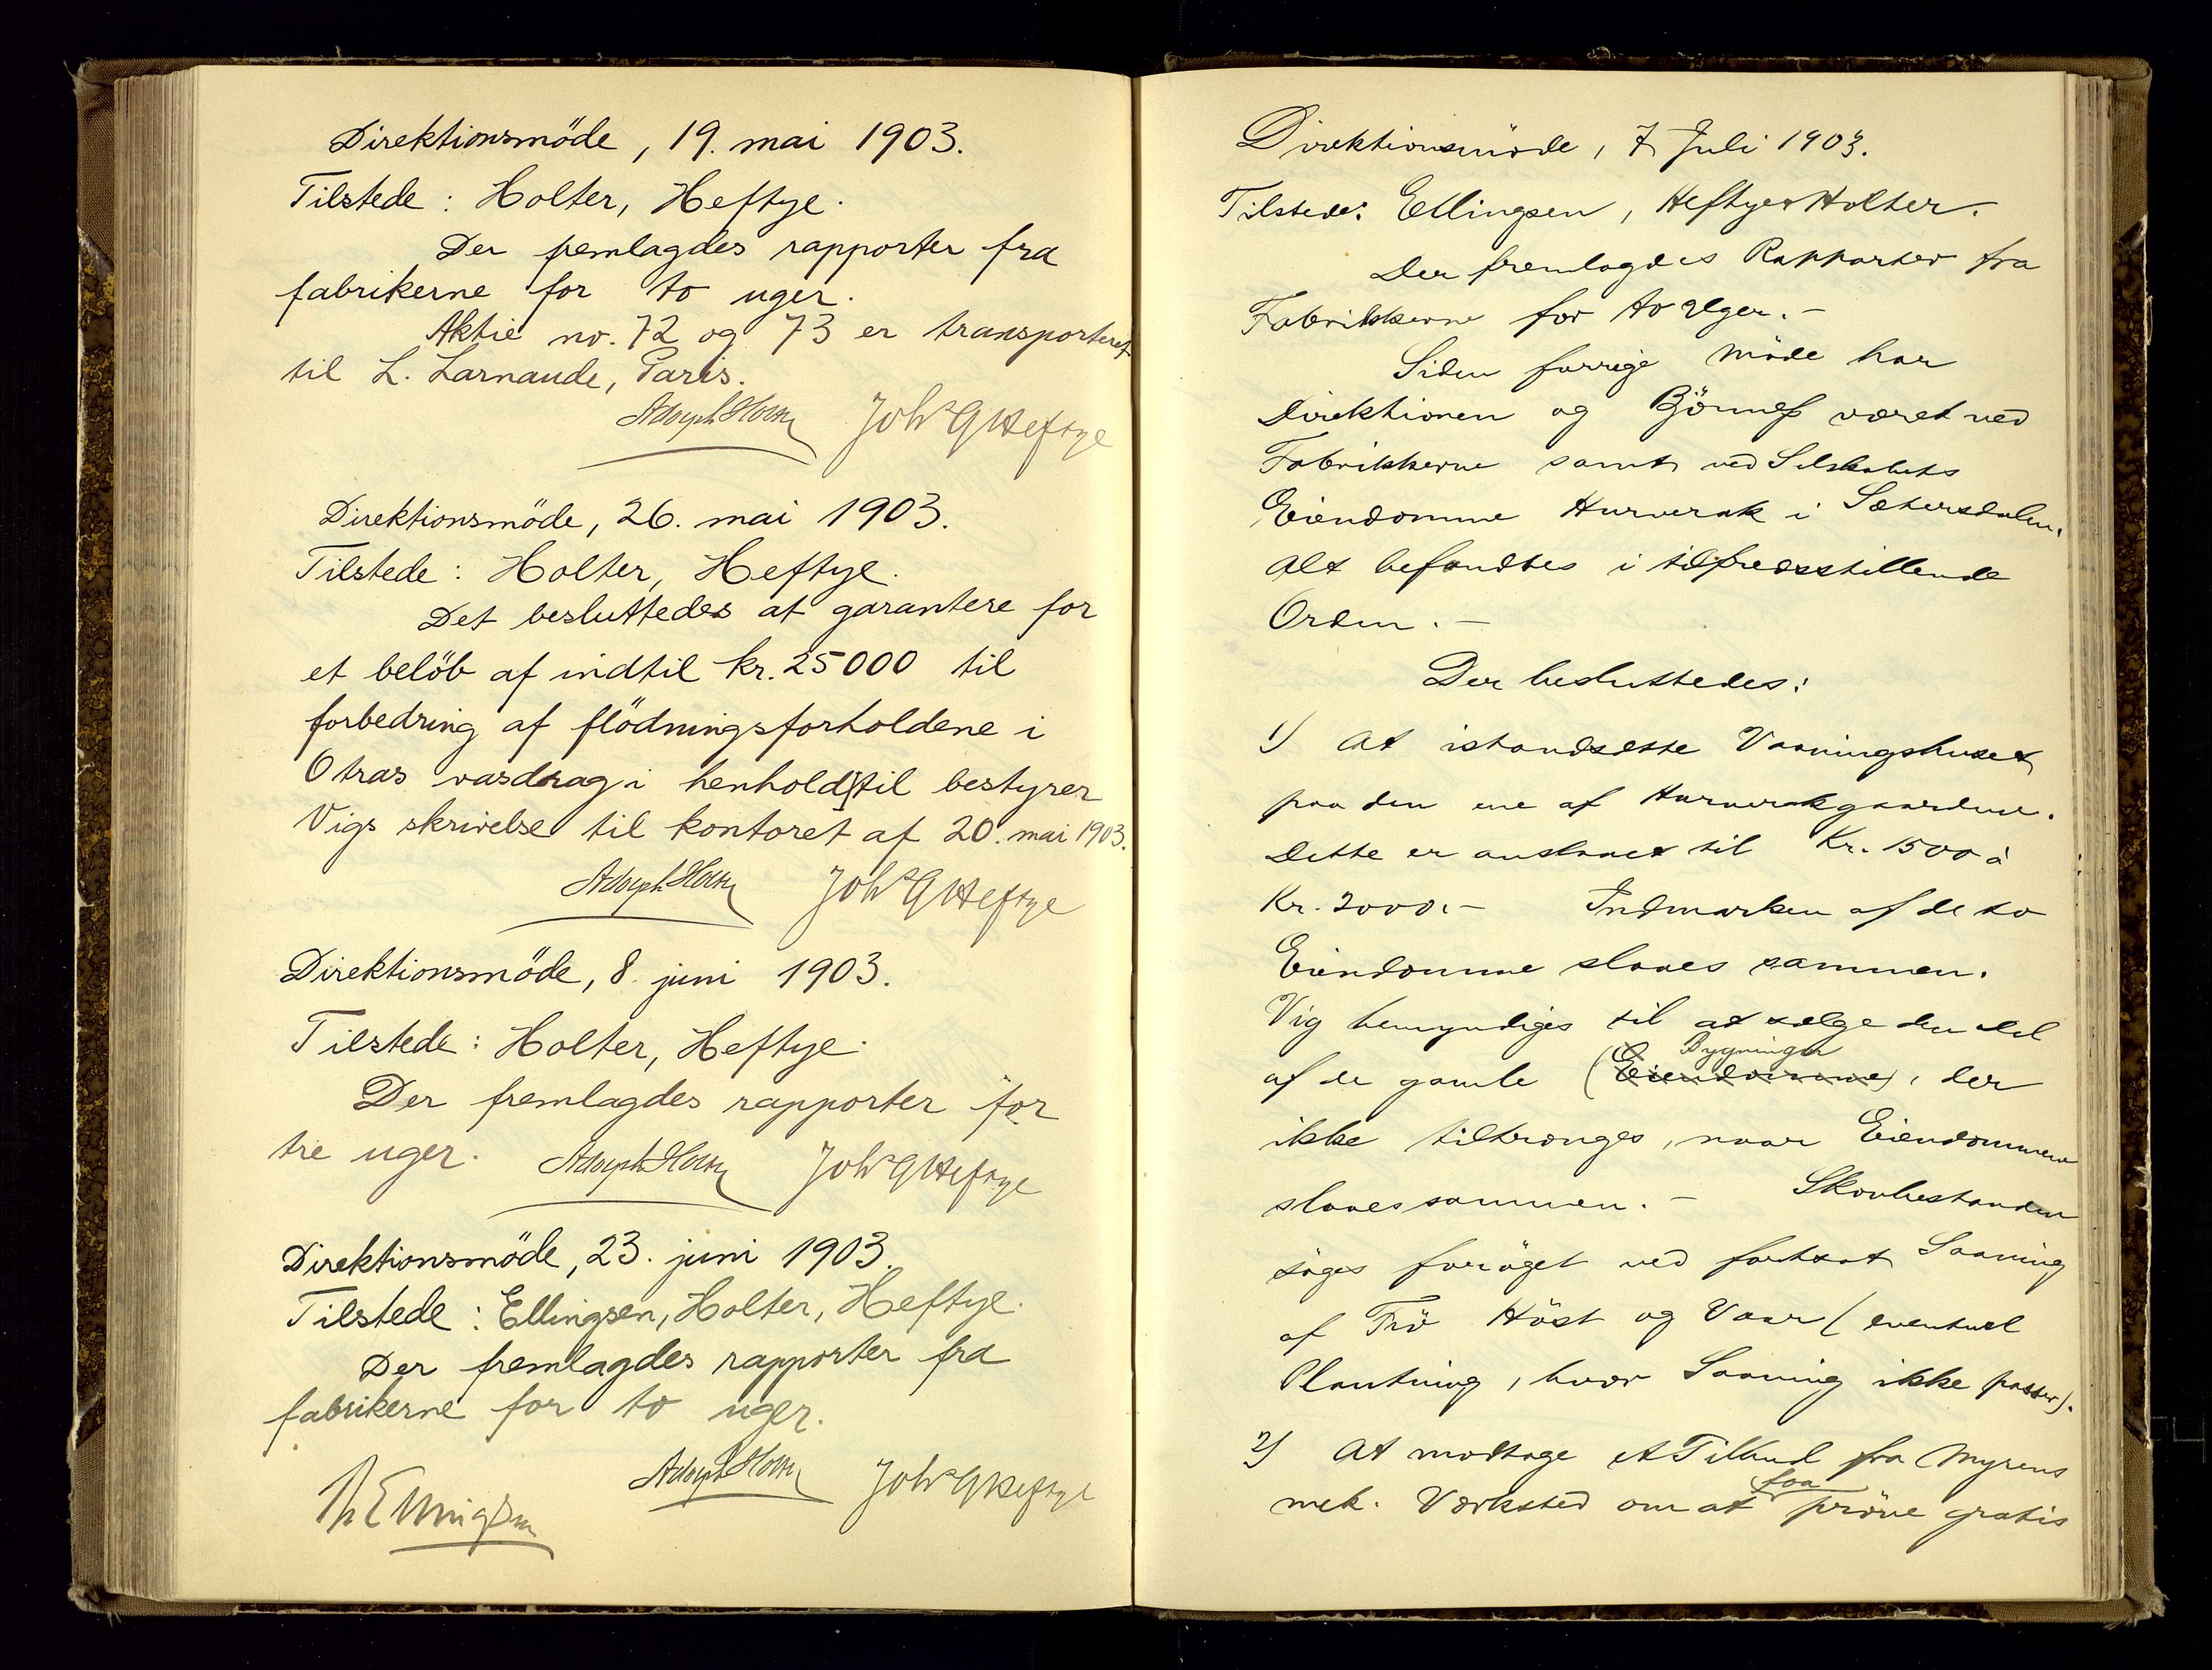 Direktionsmöde, 19. mai 1903.
Tilstede: Holter, Heftye.
Der fremlagdes rapporter fra
fabrikerne for to uger.
Aktie no. 72 og 73 er transporteret
til L. Larnaude, Paris.
Adolph Holter Joh. G Heftye
Direktionsmöde, 26. mai 1903.
Tilstede: Holter, Heftye.
Det besluttedes at garantere for
et belöb af indtil kr. 25000 til
forbedring af flödningsforholdene i
Otras vasdrag i henhold til bestyrer
Vigs skrivelse til kontoret af 20. mai 1903.
Adolph Holter Joh. G Heftye
Direktionsmöde, 8. juni 1903.
Tilstede: Holter, Heftye.
Der fremlagdes rapporter for
tre uger. Adolph Holter Joh. G Heftye
Direktionsmöde, 23. juni 1903.
Tilstede: Ellingsen, Holter, Heftye.
Der fremlagdes rapporter fra
fabrikerne for to uger.
Adolph Holter Joh. G Heftye
Ellingsen
Direktionsmöde, 7 Juli 1903.
Tilstede: Ellingsen, Heftye & Holter.
Der fremlagdes Rapporter fra
Fabrikkerne for to Uger. -
Siden forrige Möde har
Direktionen og Bjönness været ved
Fabrikkerne samt ved Selskabets
Eiendomme Hurverak i Sætersdalen.
Alt befandtes i tilfredsstillende
Orden. -
Der besluttedes:
1) At istandsætte Vaaningshuset
paa den ene af Hurverakgaardene.
Dette er anslaaet til Kr. 1500 à
Kr. 2000.- Indmarken af de to
Eiendomme slaaes sammen.
Vig bemyndiges til at sælge den del
af de gamle (Eiendomme) Bygninger, der
ikke tiltrænges, naar Eiendommene
slaaes sammen. - Skovbestanden
söges foröget ved fortsat Saaning
af Frö Höst og Vaar (eventuel
Plantning, hvor Saaning ikke passer).
2) At modtage et Tilbud fra Myrens
mek. Værksted om at faa pröve gratis